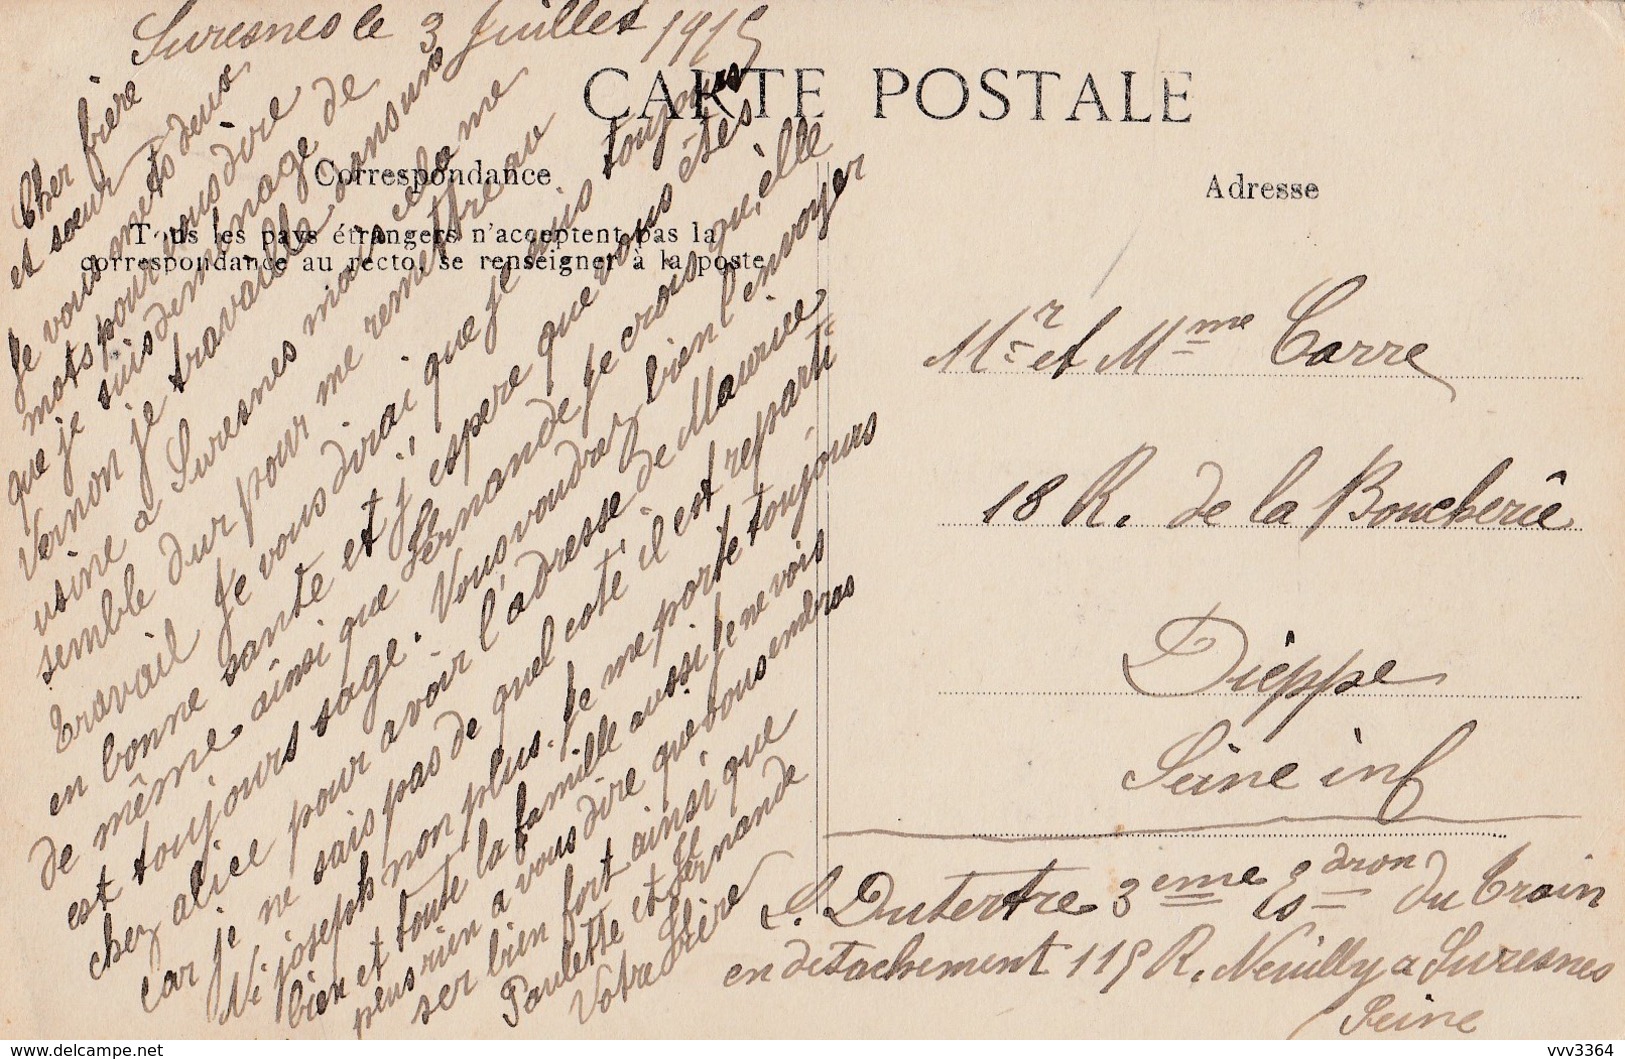 Suresnes le 3 Juillet 1915
CARTE POSTALE
Correspondance
Tous les pays étrangers n'acceptent pas la
correspondance au recto, se renseigner à la poste
Cher frère
et sœur
Je vous mets deux
mots pour vous dire
que je suis deménage de
Vernon je travaille dans une
usine a Suresnes mais cela me
semble dur pour me remettre au
travail Je vous dirai que je suis toujours
en bonne sante et j'espere que vous êtes
de même ainsi que Fernande je crois qu'elle
est toujours sage. Vous voudrez bien l'envoyer
chez alice pour avoir l'adresse de Maurice
car je ne sais pas de quel coté il est reparti
Ni joseph non plus. Je me porte toujours
bien et toute la famille aussi je ne vois
plus rien a vous dire que vous embras
ser bien fort ainsi que
Paulette et Fernande
Votre Frère
Adresse
Mr et Mme Carre
18 R. de la Boucherie
Dieppe
Seine inf
S. Dutertre 3eme Esdron du train
en detachement 115 R. Neuilly a Suresnes
Seine
vvv3364